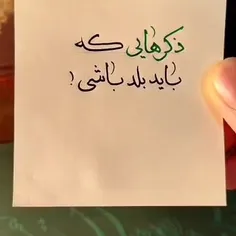 ذکرهایی که
باید بلد باشی!